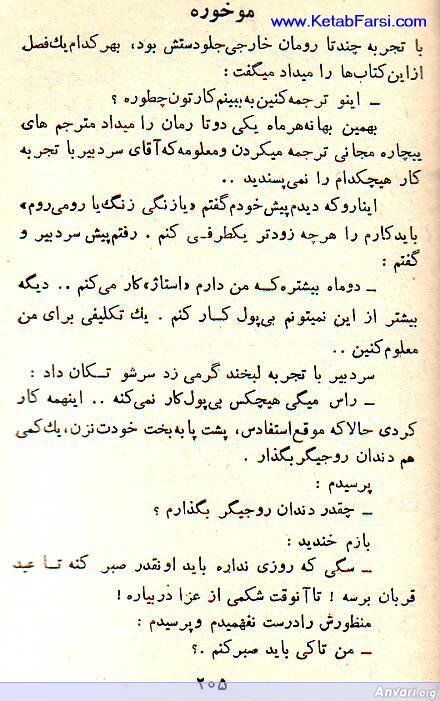 www.KetabFarsi.com
موخوره
با تجربه چندتا رومان خارجی جلودستش بود، بهر کدام یك فصل
از این کتاب‌ها را میداد میگفت:
ــ اینو ترجمه کنین به بینم کارتون چطوره ؟
بهمین بهانه هر ماه یکی دوتا رمان را میداد مترجم های
بیچاره مجانی ترجمه میکردن و معلومه که آقای سردبیر با تجربه
کار هیچکدام را نمی پسندید ..
اینارو که دیدم پیش خودم گفتم «یازنگی زنگ یا رومی روم»
باید کارم را هر چه زودتر یکطرفی کنم . رفتم پیش سردبیر و
گفتم :
ــ دوماه بیشتره که من دارم «استاژ» کار می کنم .. دیگه
بیشتر از این نمیتونم بی پول کار کنم . یك تکلیفی برای من
معلوم کنین ..
سردبیر با تجربه لبخند گرمی زد سرشو تکان داد :
ــ راس میگی هیچکس بی پول کار نمی کنه .. اینهمه کار
کردی حالا که موقع استفادس، پشت پا به بخت خودت نزن، یك کمی
هم دندان رو جیگر بگذار .
پرسیدم :
ــ چقدر دندان رو جیگر بگذارم ؟
بازم خندید :
ــ سگی که روزی نداره باید اونقدر صبر کنه تا عید
قربان برسه ! تا آنوقت شکمی از عزا در بیاره !
منظورش را درست نفهمیدم و پرسیدم :
ــ من تا کی باید صبر کنم .؟
۲۰۵
Anvari.org